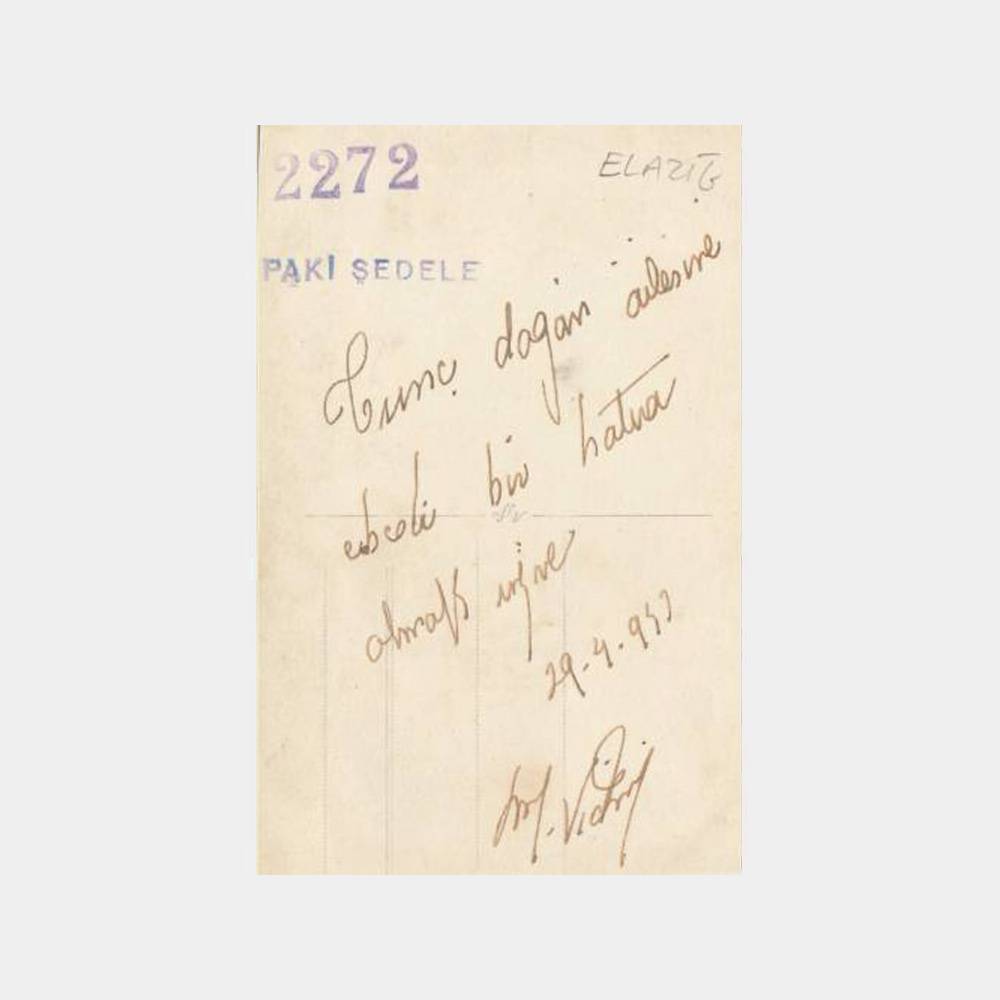 2272
ELAZIĞ
PAKİ ŞEDELE
Tunç doğan ailesine
ebedi bir hatıra
olmak üzre
29.4.953